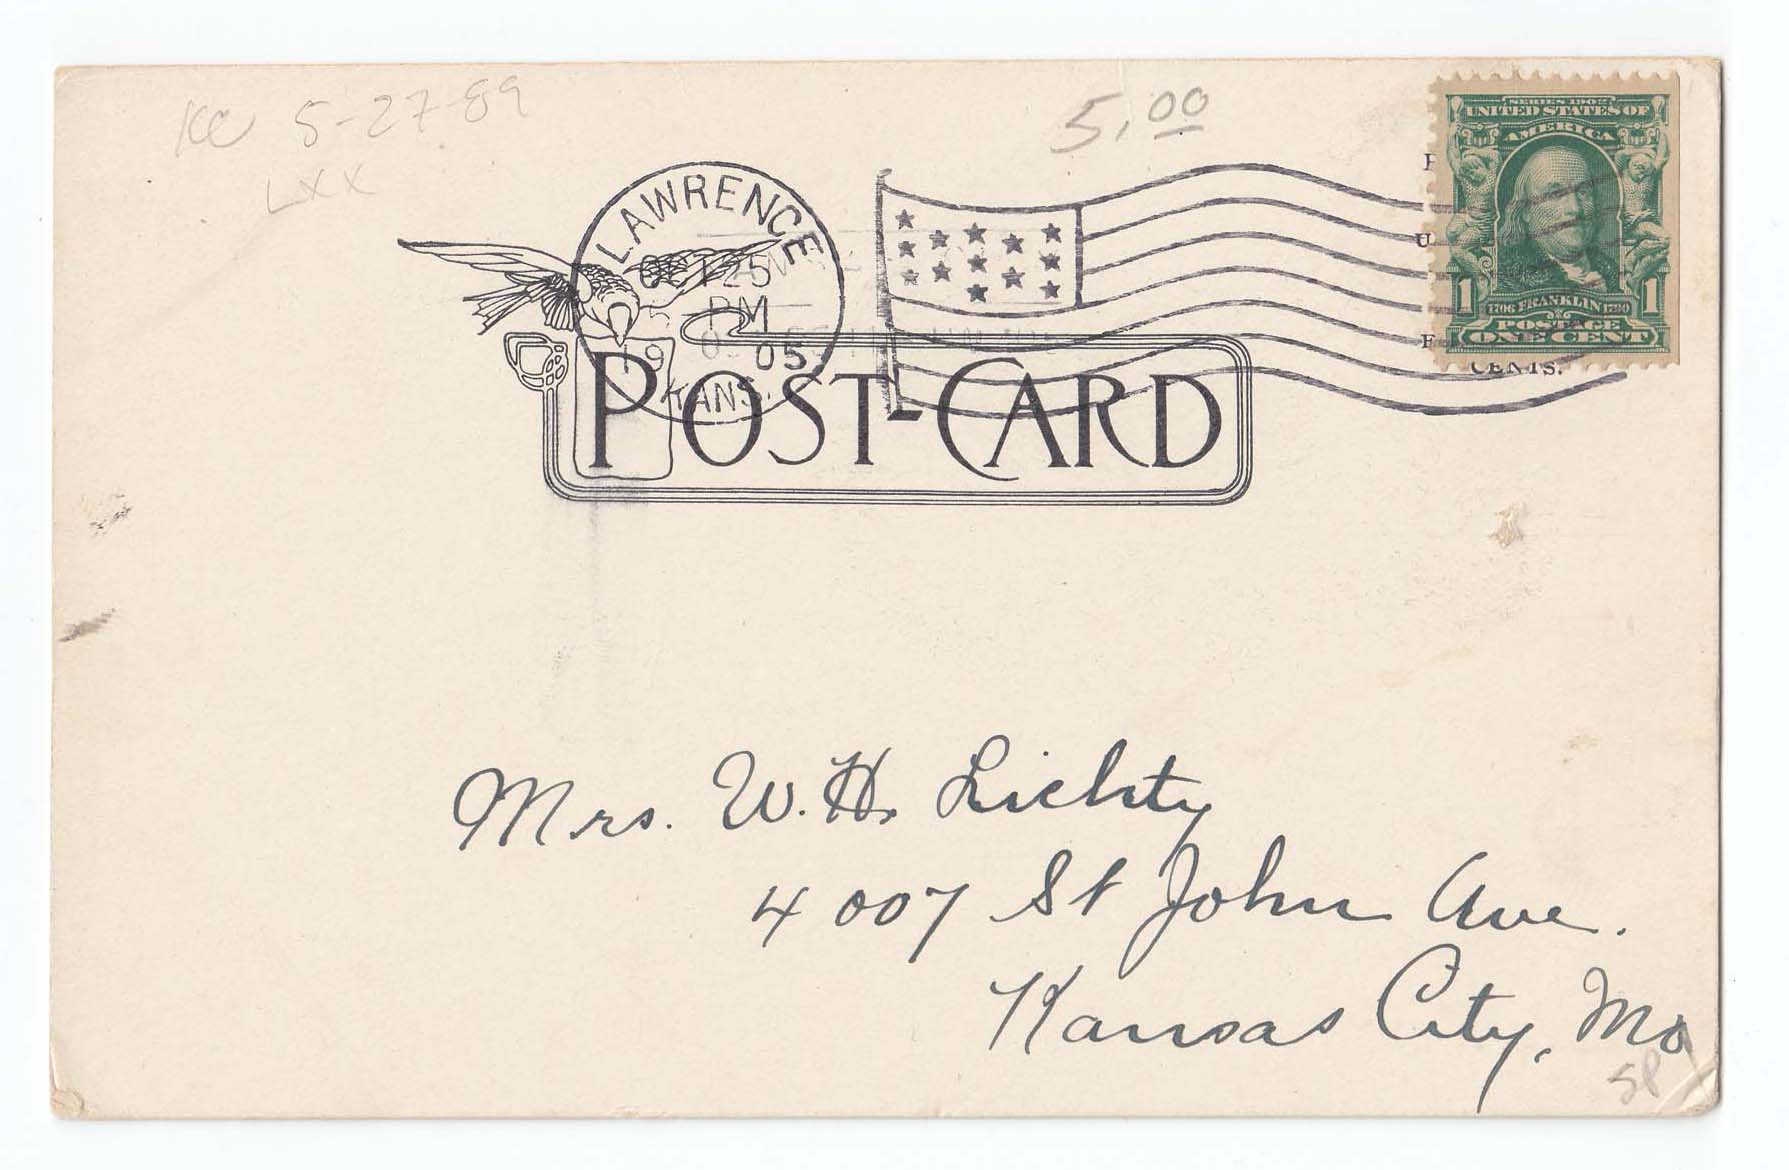 KC 5-27-89
LXX
5.00
SERIES 1902
UNITED STATES OF
AMERICA
1 1706 FRANKLIN 1790 1
POSTAGE
ONE CENT
LAWRENCE
OCT 25
PM
05
KANS.
CENTS.
POST-CARD
Mrs. W. H. Lichty
4007 St John Ave.
Kansas City, Mo